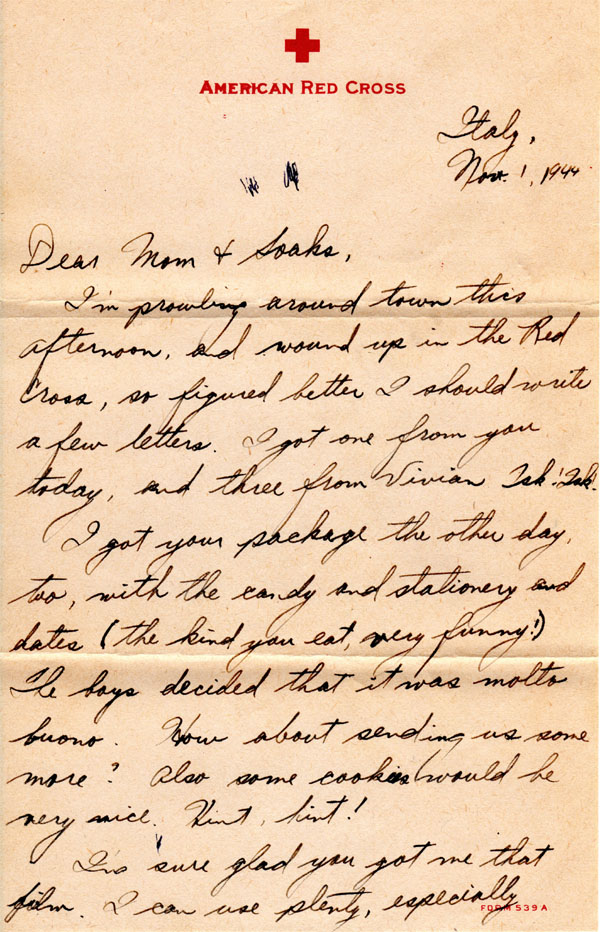 AMERICAN RED CROSS
Italy,
Nov. 1, 1944.
Dear Mom & Soaks,
I'm prowling around town this
afternoon, and wound up in the Red
Cross, so figured better I should write
a few letters. I got one from you
today, and three from Vivian Tsk! Tsk!
I got your package the other day,
too, with the candy and stationery and
dates (the kind you eat, very funny!)
The boys decided that it was molto
buono. How about sending us some
more? Also some cookies would be
very nice. Hint, hint!
I'm sure glad you got me that
film. I can use plenty, especially
FORM 539A